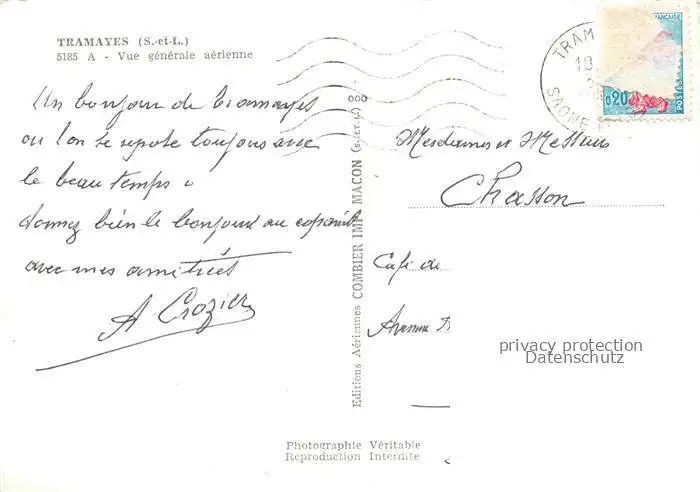 TRAMAYES (S.-et-L.)
5185 A - Vue générale aérienne
Un bonjour de Tramayes
ou l'on se repose toujours avec
le beau temps.
donnez bien le bonjour au copains
avec mes amitiés
A Crozier
Editions Aériennes COMBIER IMP. MACON (S.-ET-L.)
Photographie Véritable
Reproduction Interdite
TRAM
18
SAONE-E
FRANÇAISE
0,20
POSTES
Mesdames et Messieurs
Chasson
Café de
Avenue
privacy protection
Datenschutz